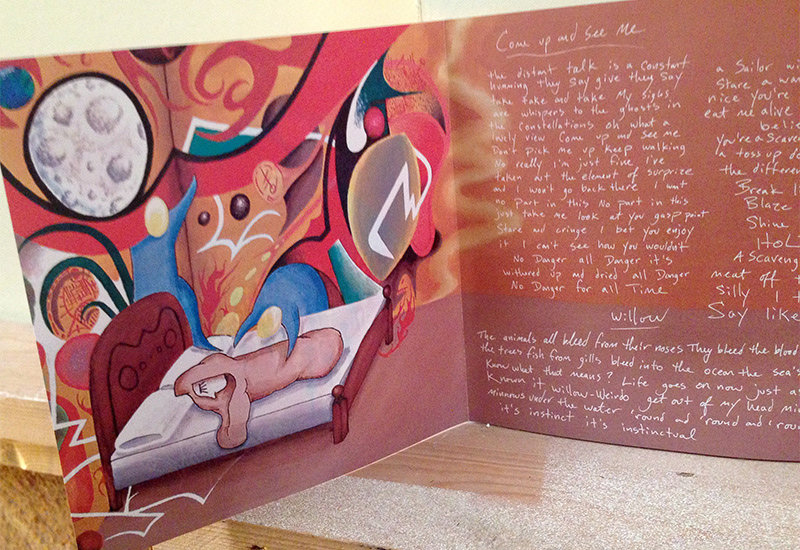 Come up and See Me
the distant talk is a constant
humming they say give they say
take take and take My sighs
are whispers to the ghosts in
the constellations oh what a
lovely view Come up and see me
Don't Pick it up Keep walking
No really i'm just fine I've
taken out the element of surprize
and I won't go back there I want
no part in this No part in this
just take me look at you gasp point
Stare and cringe I bet you enjoy
it I can't see how you wouldnt
No Danger all Danger it's
withured up and dried all Danger
No Danger for all Time
Willow
The animals all bleed from their noses They bleed the blood
the trees fish from gills bleed into the ocean the sea's
Know what that means? Life goes on now just a
Known it willow-Weirdo get out of my head mi
minnows under the water 'round and 'round and 'rou
it's instinct it's instinctual
a Sailor wi
Stare a wa
nice you're
eat me alive
belie
you're a Scave
a toss up de
the differen
Break I
Blaze
Shine
HoL
A Scaveng
meat off t
Silly I t
Say like